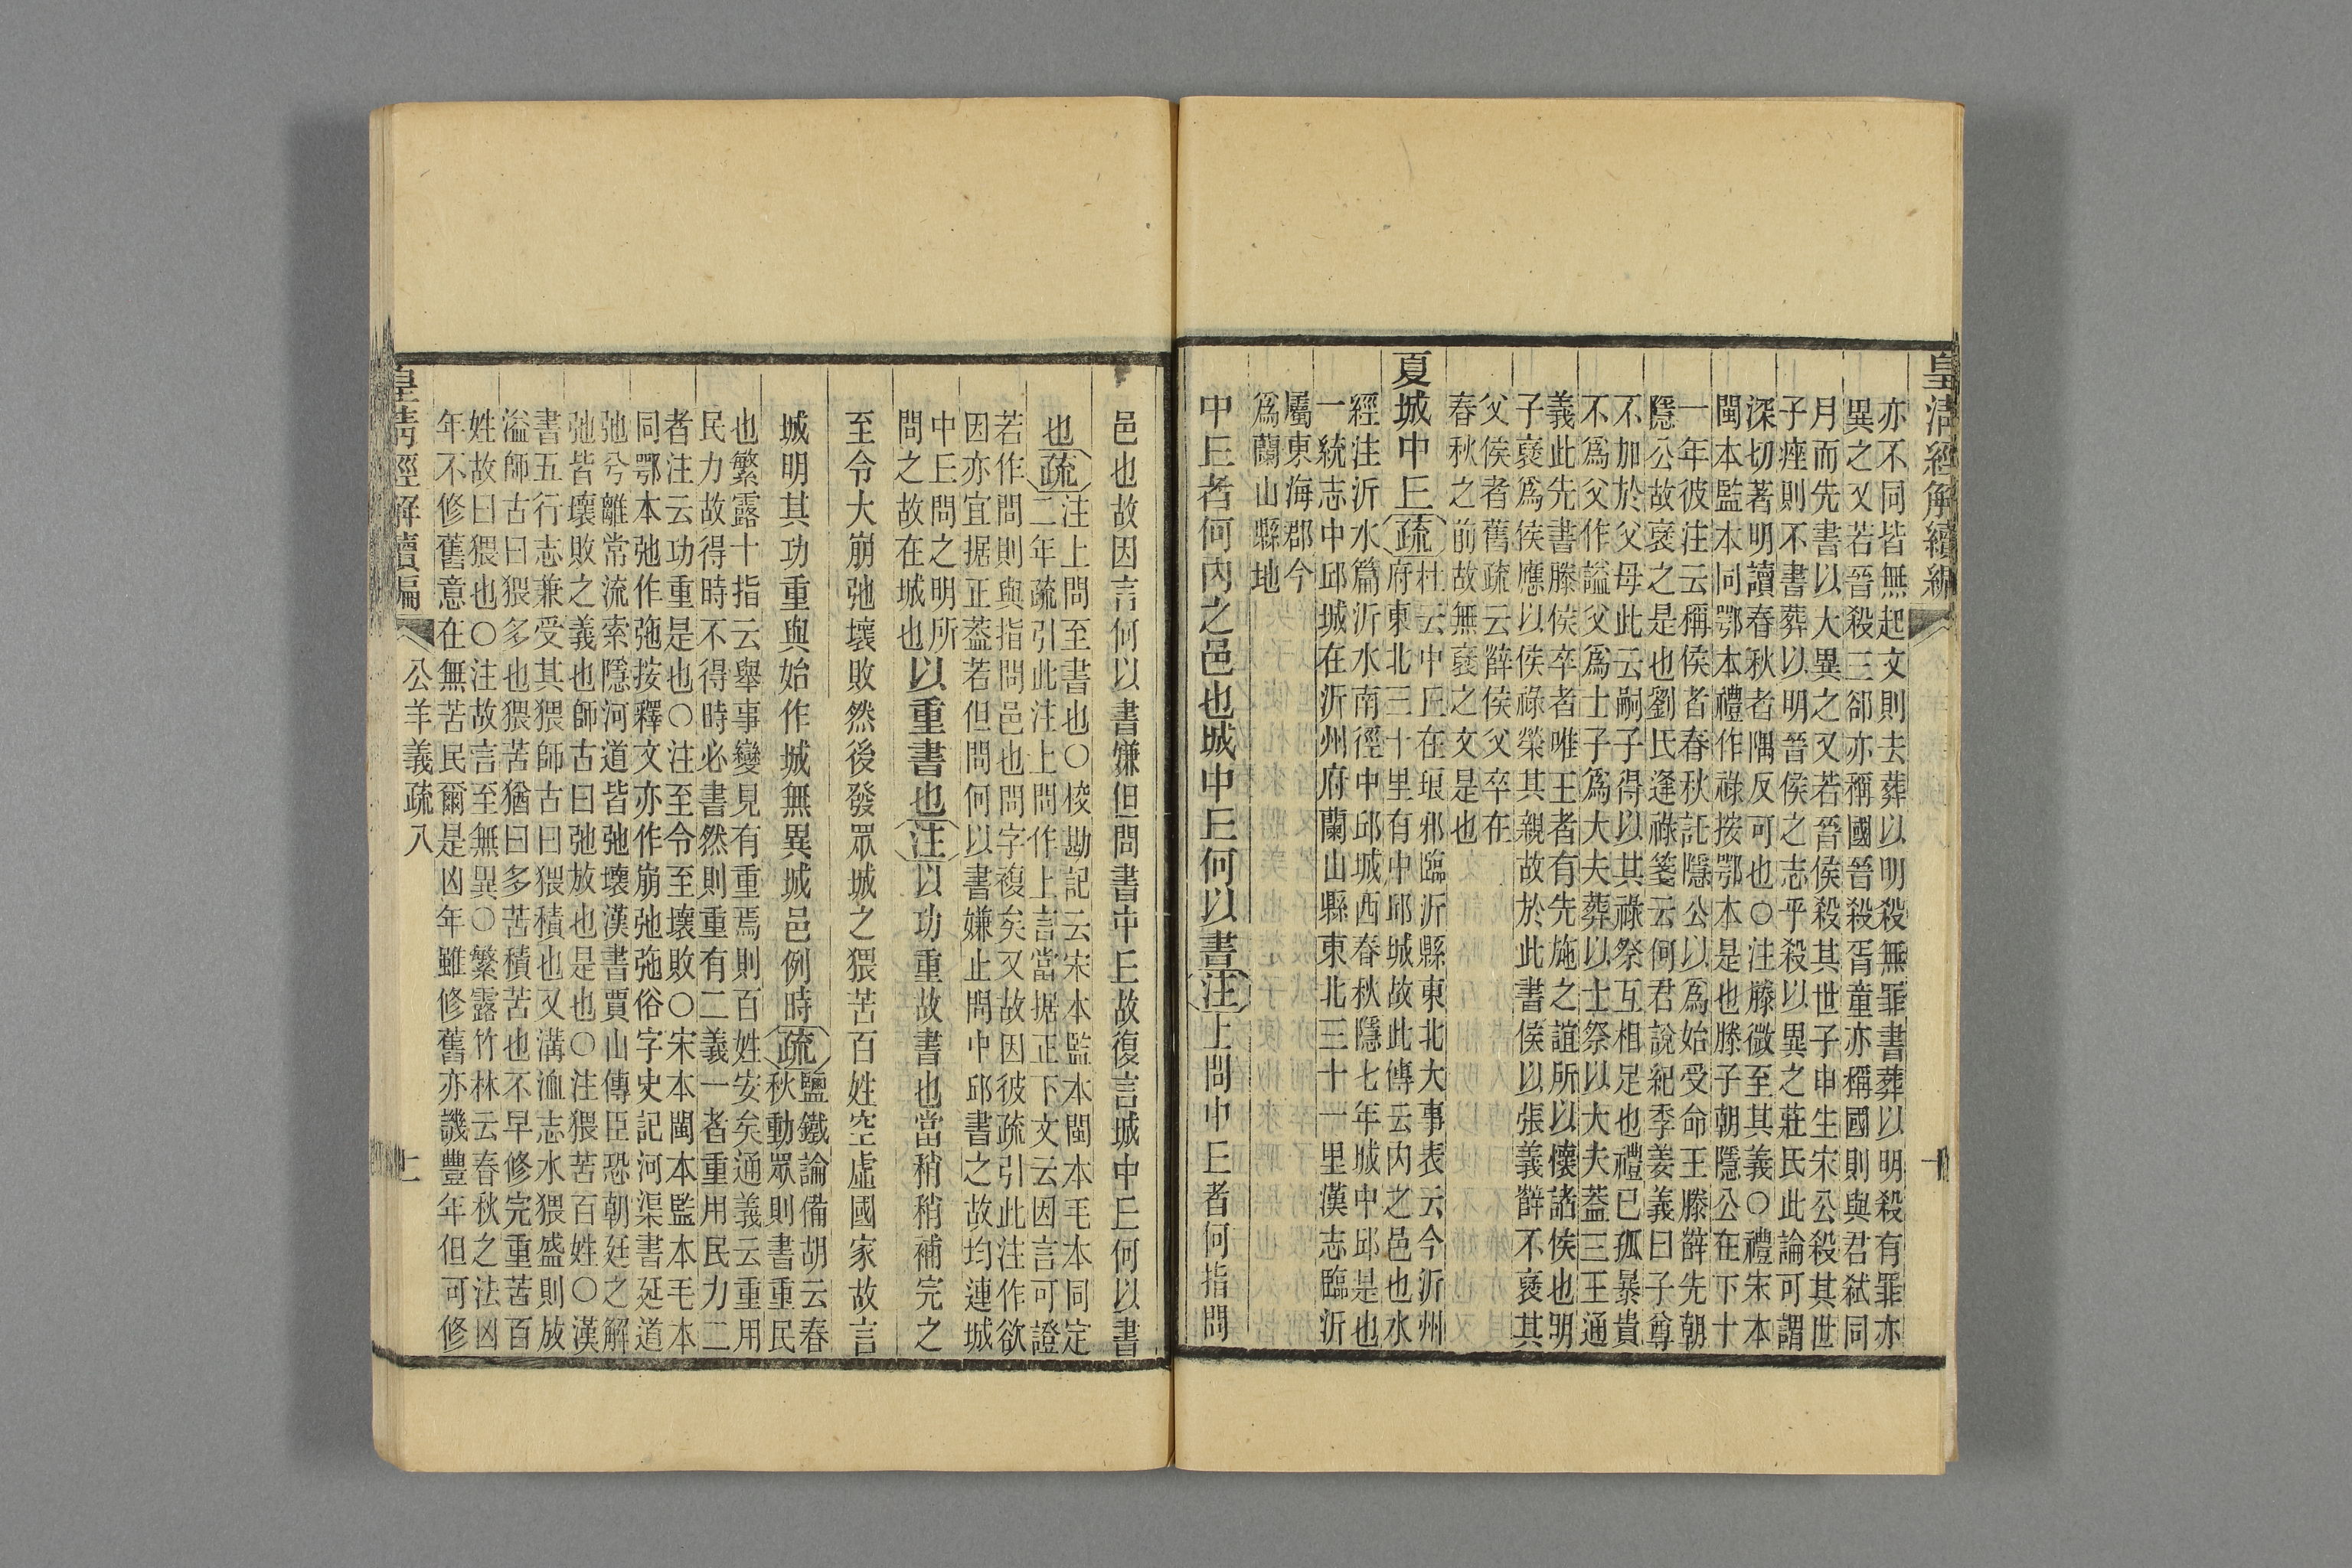 皇清經解續編
亦不同皆無起文則去葬以明殺無罪書葬以明殺有罪亦
異之又若晉殺三郤亦稱國晉殺胥童亦稱國則與君弑同
月而先書以大異之又若晉侯殺其世子申生宋公殺其世
子痤則不書葬以明晉侯之志乎殺以異之莊氏此論可謂
深切著明讀春秋者隅反可也○注滕微至其義○禮宋本
閩本監本同鄂本禮作祿按鄂本是也滕子朝隱公在下十
一年彼注云稱侯者春秋託隱公以爲始受命王滕薛先朝
隱公故襃之是也劉氏逢祿箋云何君說紀季姜義曰子尊
不加於父母此云嗣子得以其祿祭互相足也禮已孤暴貴
不爲父作謚父爲士子爲大夫葬以士祭以大夫蓋三王通
義此先書滕侯卒者唯王者有先施之誼所以懷諸侯也明
子襃爲侯應以侯祿榮其親故於此書侯以張義薛不襃其
父侯者舊疏云薛侯父卒在
春秋之前故無襃之文是也
夏城中㐀
疏
杜云中㐀在琅邪臨沂縣東北大事表云今沂州
府東北三十里有中邱城故此傳云內之邑也水
經注沂水篇沂水南徑中邱城西春秋隱七年城中邱是也
一統志中邱城在沂州府蘭山縣東北三十一里漢志臨沂
屬東海郡今
爲蘭山縣地
中㐀者何內之邑也城中㐀何以書注上問中㐀者何指問
邑也故因言何以書嫌但問書中㐀故復言城中㐀何以書
也疏
注上問至書也○校勘記云宋本監本閩本毛本同定
二年疏引此注上問作上言當据正下文云因言可證
若作問則與指問邑也問字複矣又故因彼疏引此注作欲
因亦宜据正蓋若但問何以書嫌止問中邱書之故均連城
中㐀問之明所
問之故在城也
以重書也注以功重故書也當稍稍補完之
至令大崩弛壞敗然後發眾城之猥苦百姓空虛國家故言
城明其功重與始作城無異城邑例時疏
鹽鐵論備胡云春
秋動眾則書重民
也繁露十指云舉事變見有重焉則百姓安矣通義云重用
民力故得時不得時必書然則重有二義一者重用民力二
者注云功重是也○注至令至壞敗○宋本閩本監本毛本
同鄂本弛作㢮按釋文亦作崩弛㢮俗字史記河渠書延道
弛兮離常流索隱河道皆弛壞漢書賈山傳臣恐朝廷之解
弛皆壞敗之義也師古曰弛放也是也○注猥苦百姓○漢
書五行志兼受其猥師古曰猥積也又溝洫志水猥盛則放
溢師古曰猥多也猥苦猶曰多苦積苦也不早修完重苦百
姓故曰猥也○注故言至無異○繁露竹林云春秋之法凶
年不修舊意在無苦民爾是凶年雖修舊亦譏豐年但可修
皇清經解續編
公羊義疏八